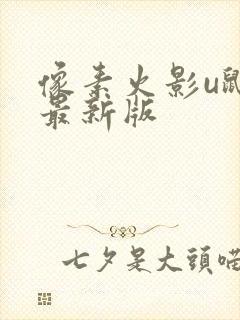 像素火影u鼠
最新版
七夕是大頭喵